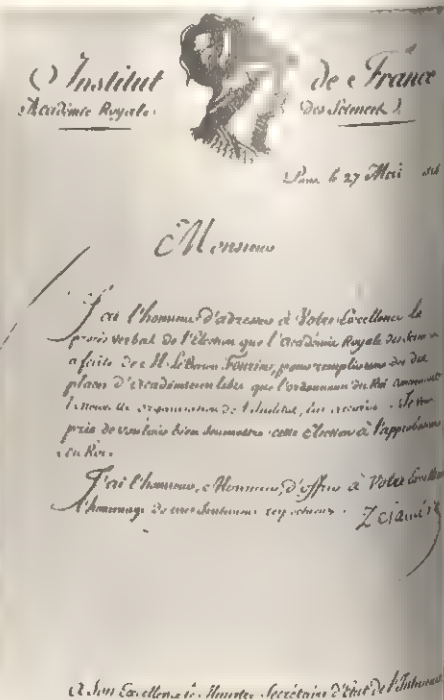 Institut de France
Académie Royale des Sciences
Paris le 27 Mai
Monsieur
J'ai l'honneur d'adresser à Votre Excellence le
procès verbal de l'Election que l'académie Royale des
a faite de M. Le Baron Fourier, pour remplir une des dix
places d'académicien libre que l'ordonnance du Roi
organisation de l'Institut, lui
prie de vouloir bien soumettre cette Election à l'approbation
du Roi.
J'ai l'honneur, Monsieur, d'offrir à Votre Excellence
l'hommage de mes sentimens respectueux.
A Son Excellence le Ministre Secrétaire d'Etat de l'Intérieur